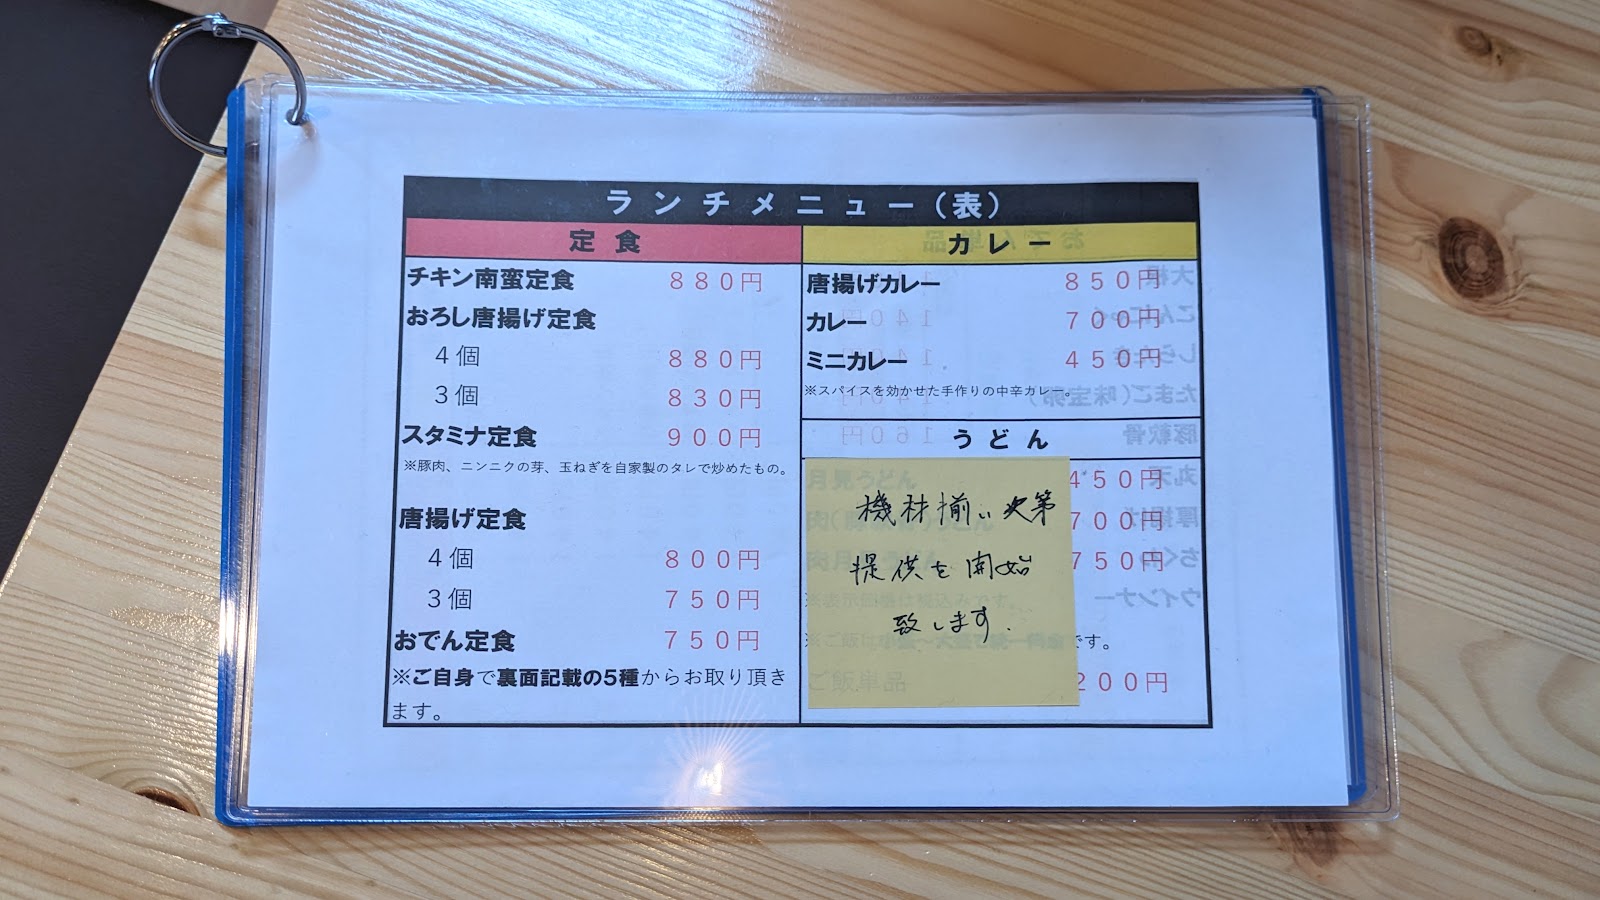 ランチメニュー（表）
定食
チキン南蛮定食 ８８０円
おろし唐揚げ定食
４個 ８８０円
３個 ８３０円
スタミナ定食 ９００円
※豚肉、ニンニクの芽、玉ねぎを自家製のタレで炒めたもの。
唐揚げ定食
４個 ８００円
３個 ７５０円
おでん定食 ７５０円
※ご自身で裏面記載の5種からお取り頂き
ます。
カレー
唐揚げカレー ８５０円
カレー ７００円
ミニカレー ４５０円
※スパイスを効かせた手作りの中辛カレー。
うどん
月見うどん ４５０円
７００円
７５０円
機材揃い次第
提供を開始
致します.
です。
ご飯単品 ２００円